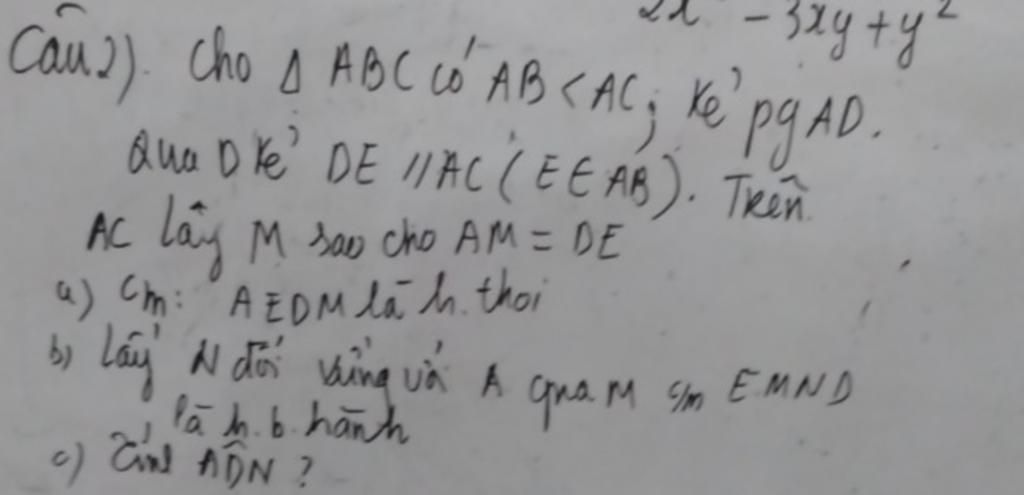 2x - 3xy + y²
Câu 2). Cho Δ ABC có AB < AC; Kẻ pg AD.
Qua D kẻ DE // AC ( E ∈ AB ). Trên
AC lấy M sao cho AM = DE
a) Cm: AEDM là h. thoi
b) Lấy N đối xứng với A qua M c/m EMND
là h. b. hành
c) Tính ADN ?